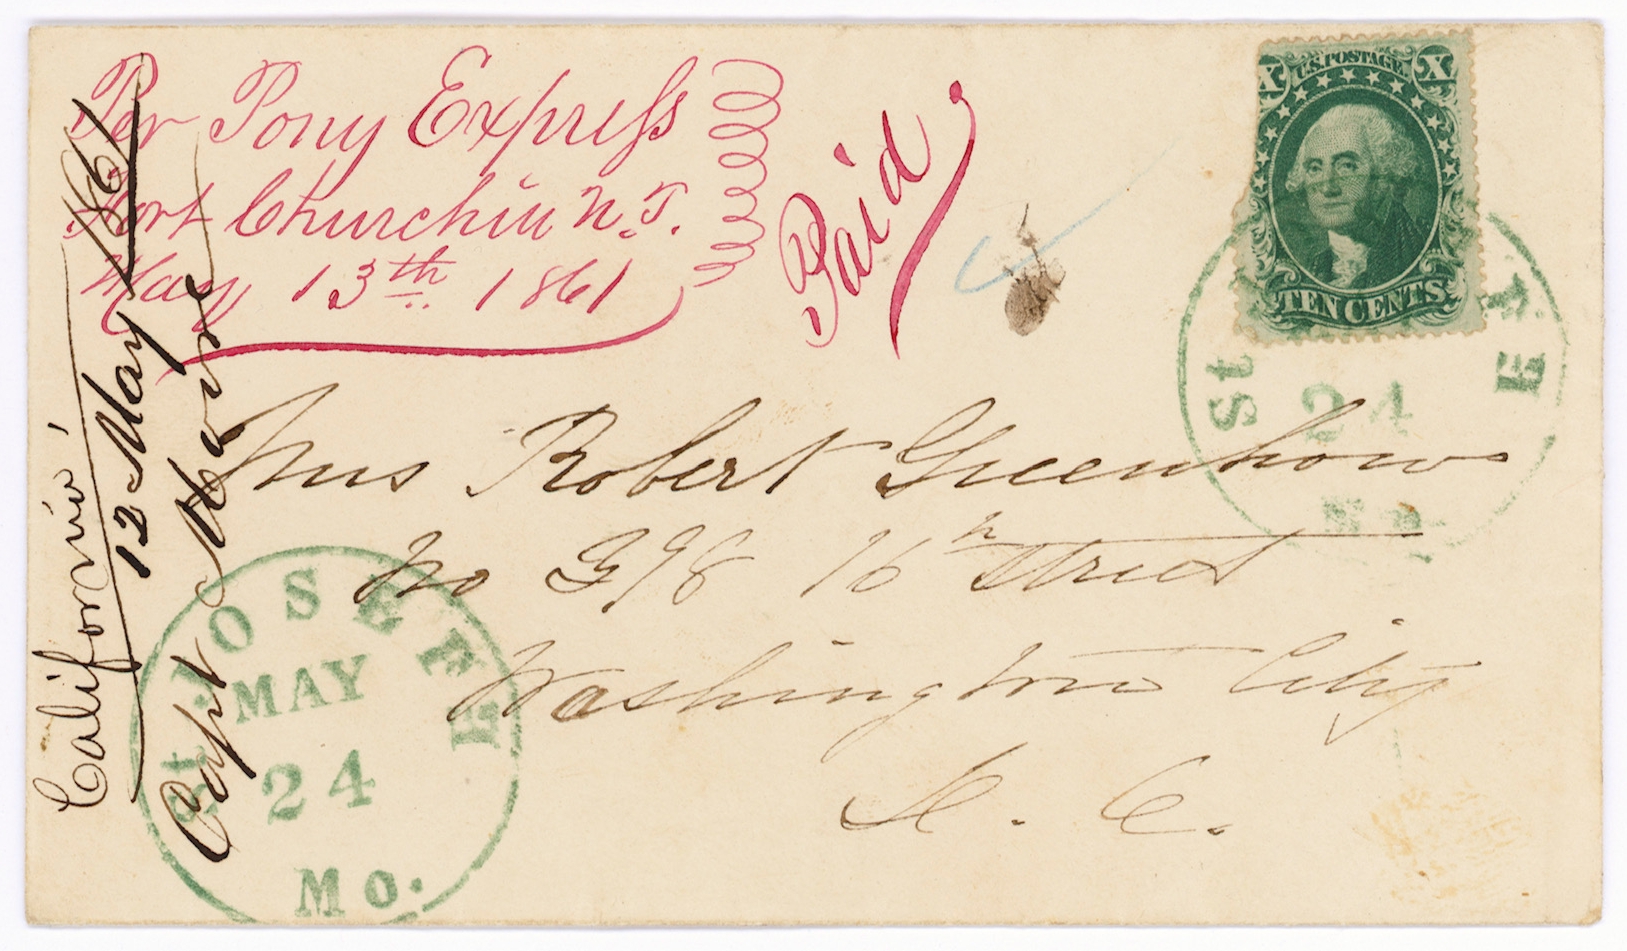 Per Pony Express
Fort Churchill N.T.
May 13th 1861
Paid
X U.S. POSTAGE X
TEN CENTS
St JOSEPH
24
Mo.
California,
12 May 1861
Capt
Mrs Robert Greenhow
No 398 16h Street
Washington City
D. C.
St JOSEPH
MAY
24
Mo.